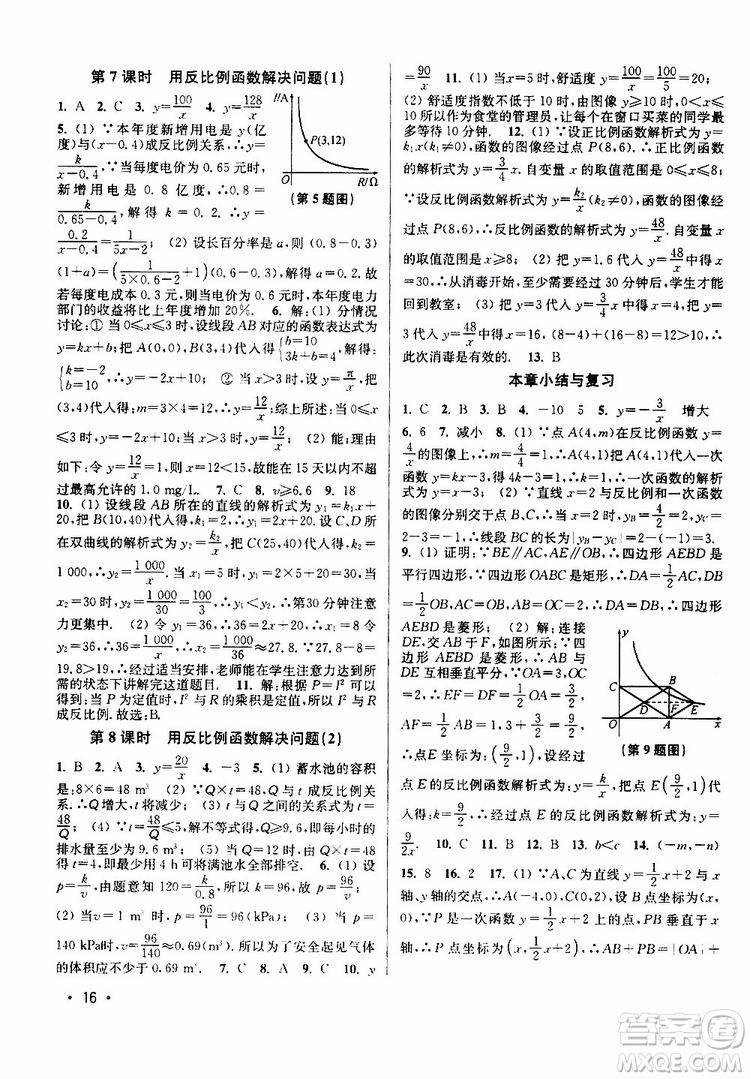 第 7 课时　用反比例函数解决问题(1)
1. A  2. C  3. y=100/x  4. y=128/x
5. (1) ∵本年度新增用电是 y(亿
度)与(x-0.4)成反比例关系,∴y=
k/(x-0.4).∵当每度电价为 0.65 元时,
新增用电是 0.8 亿度,∴0.8=
k/(0.65-0.4),解得 k=0.2.∴y=
I/A
P(3,12)
O
R/Ω
(第 5 题图)
0.2/(x-0.4)=1/(5x-2).　(2) 设长百分率是 a,
(1+a)=(1/(5×0.6-2)+1)(0.6-0.3),∴a=0.2.故
若每度电成本 0.3 元,则电价为 0.6 元时,本年度电力
部门的收益将比上年度增加 20%.　6. 解:(1) 分情况
讨论:① 当 0≤x≤3 时,设线段 AB 对应的函数表达式为
y=kx+b.把 A(0,10),B(3,4)代入得{b=10 3k+b=4,解得
{k=-2 b=10,∴y=-2x+10;　② 当 x>3 时,设 y=m/x,把
(3,4)代入得:m=3×4=12,∴y=12/x;综上所述:当 0≤x
≤3 时,y=-2x+10;当 x>3 时,y=12/x;　(2) 能;理由
如下:令 y=12/x=1,则 x=12<15,故能在 15 天以内不超
过最高允许的 1.0 mg/L.　7. C  8. v≥6.6  9. 18
10. (1) 设线段 AB 所在的直线的解析式为 y₁=k₁x+
30,把 B(10,40)代入得,k₁=2,∴y₁=2x+30.设 C、D 所
在双曲线的解析式为 y₂=k₂/x,把 C(25,40)代入得,k₂=
1 000,∴y₂=1 000/x,当 x₁=5 时,y₁=2×5+30=40,当
x₂=30 时,y₂=1 000/30=100/3,∴y₁>y₂.∴第30分钟注意
力更集中.　(2) 令 y₁=36,∴36=2x+30,∴x₁=3,令 y₂
=36,∴36=1 000/x,∴x₂=1 000/36≈27.8,∵27.8-3=24.8>
19.8>16,∴经过适当安排,老师能在学生注意力达到所
需的状态下讲解完这道题目.　11. 解:根据 P=I²R 可以
得到:当 P 为定值时,I²与 R 的乘积是定值,所以 I²与 R
成反比例.故选:B.
第 8 课时　用反比例函数解决问题(2)
1. B  2. A  3. y=20/x  4. -3  5. (1) 蓄水池的容积
是:8×6=48(m³).　(2) ∵Q×t=48,Q 与 t 成反比例关
系.∴Q增大,t将减小.　(3) t与Q之间的关系式为 t=
48/Q　(4) ∵t=48/Q≤5,解不等式得:Q≥9.6,即每小时的
排水量至少为 9.6 m³.　(5) 当 Q=12 时,由 Q×t=48 得
t=4,即最少用 4 h 可将满池水全部排空.　6. (1) 设
p=k/v,由题意知 120=k/0.8,所以 k=96,故 p=96/v;
(2) 当 v=1 m³ 时,p=96/1=96(kPa);　(3) 当 p=
140 kPa时,v=96/140≈0.69(m³).所以为了安全起见,气体
的体积应不少于 0.69 m³.　7. C  8. A  9. C  10. y
· 16 ·
=90/x　11. (1) 当 x=5 时,舒适度 y=100/x=100/5=20;
(2) 舒适度指数不低于 10 时,由图像 y≥10 时,0<x≤
10,所以作为食堂的管理员,让每个在窗口买菜的同学最
多等待 10 分钟.　12. (1) ∵设正比例函数解析式为 y=
k₁x(k₁≠0),∵正比例函数的图像经过点 P(8,6),∴函数
的解析式为 y=3/4x.自变量 x 的取值范围是 0≤x≤8;
∵设反比例函数解析式为 y=k₂/x(k₂≠0),函数的图像经
过点 P(8,6),∴反比例函数的解析式为 y=48/x.自变量 x
的取值范围是 x≥8;　(2) 把 y=1.6 代入 y=48/x中得 x
=30,∴从消毒开始,至少需要经过 30 分钟后,学生才能
回到教室;　(3) 把 y=3 代入 y=3/4x 中得 x=4,把 y=
3 代入 y=48/x中得 x=16,∵16-4=12(分钟)>10 分钟,故
此次消毒是有效的.　13. B
本章小结与复习
1. C  2. B  3. B  4. -10  5  5. y=-3/x　增大
6. 6  7. 减小　8. (1) ∵点 A(4,m)在反比例函数 y=
4/x的图像上,∴m=4/4=1,∴A(4,1),把 A(4,1)代入一次
函数 y=kx-3,得 4k-3=1,∴k=1,∴一次函数的解析
式为 y=x-3;　(2) ∵直线 x=2 与反比例和一次函数
的图像分别交于点 B、C,∴当 x=2 时,yB=4/2=2,yC=
2-3=-1,∴线段 BC 的长为|yB-yC|=2-(-1)=3.
9. (1) 证明:∵BE∥AC,AE∥OB,∴四边形 AEBD 是
平行四边形,∵四边形 OABC 是矩形,∴DA=1/2AC,DB
=1/2OB,AC=OB,AB=OC=2,∴DA=DB,∴四边形
AEBD 是菱形;　(2) 解:连接
DE,交 AB 于 F,如图所示:∵四
边形 AEBD 是菱形,∴AB 与
DE 互相垂直平分,∵OA=3,OC
=2,∴EF=DF=1/2OA=3/2,
AF=1/2AB=1,3+3/2=9/2,
∴点 E 坐标为:(9/2,1),设经过
y
C
B
D
F
E
O
A
x
(第 9 题图)
点 E 的反比例函数解析式为:y=k/x,把点 E(9/2,1)代
入得:k=9/2,∴经过点 E 的反比例函数解析式为:y=
9/2x.　10. C  11. B  12. B  13. b<c  14. (-m,-n)
15. 8  16. 2  17. (1) ∵A、C 为直线 y=1/2x+2 与 x
轴、y 轴的交点,∴可求得 A(-4,0),C(0,2),∵P 点在一
象限且为一次函数 y=1/2x+2 上的点,PB 垂直于 x
轴,∴可设 P 点坐标为(x,1/2x+2),PB=1/2x+2,|OA|
答案圈
MXQE.COM